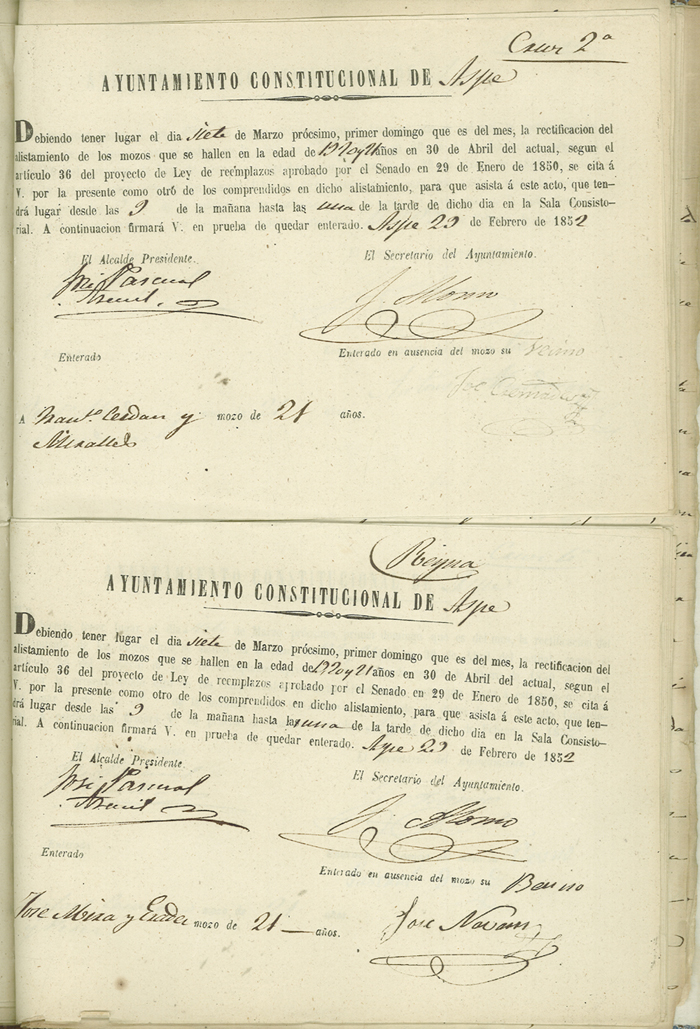 Cruz 2ª
AYUNTAMIENTO CONSTITUCIONAL DE Aspe
Debiendo tener lugar el dia siete de Marzo prócsimo, primer domingo que es del mes, la rectificacion del
alistamiento de los mozos que se hallen en la edad de 19 20 y 21 años en 30 de Abril del actual, segun el
artículo 36 del proyecto de Ley de reemplazos aprobado por el Senado en 29 de Enero de 1850, se cita á
V. por la presente como otro de los comprendidos en dicho alistamiento, para que asista á este acto, que ten-
drá lugar desde las 9 de la mañana hasta las una de la tarde de dicho dia en la Sala Consisto-
rial. A continuacion firmará V. en prueba de quedar enterado. Aspe 29 de Febrero de 1852
El Alcalde Presidente. El Secretario del Ayuntamiento.
José Pascual J. Alonso
Enterado Enterado en ausencia del mozo su Vecino
José
A Franco. Cerdan y mozo de 21 años.
Miralles
Reyna
AYUNTAMIENTO CONSTITUCIONAL DE Aspe
Debiendo tener lugar el dia siete de Marzo prócsimo, primer domingo que es del mes, la rectificacion del
alistamiento de los mozos que se hallen en la edad de 19 20 y 21 años en 30 de Abril del actual, segun el
artículo 36 del proyecto de Ley de reemplazos aprobado por el Senado en 29 de Enero de 1850, se cita á
V. por la presente como otro de los comprendidos en dicho alistamiento, para que asista á este acto, que ten-
drá lugar desde las 9 de la mañana hasta las una de la tarde de dicho dia en la Sala Consisto-
rial. A continuacion firmará V. en prueba de quedar enterado. Aspe 29 de Febrero de 1852
El Alcalde Presidente El Secretario del Ayuntamiento.
José Pascual J. Alonso
Enterado Enterado en ausencia del mozo su
José Mira y mozo de 21 años. José Navarro